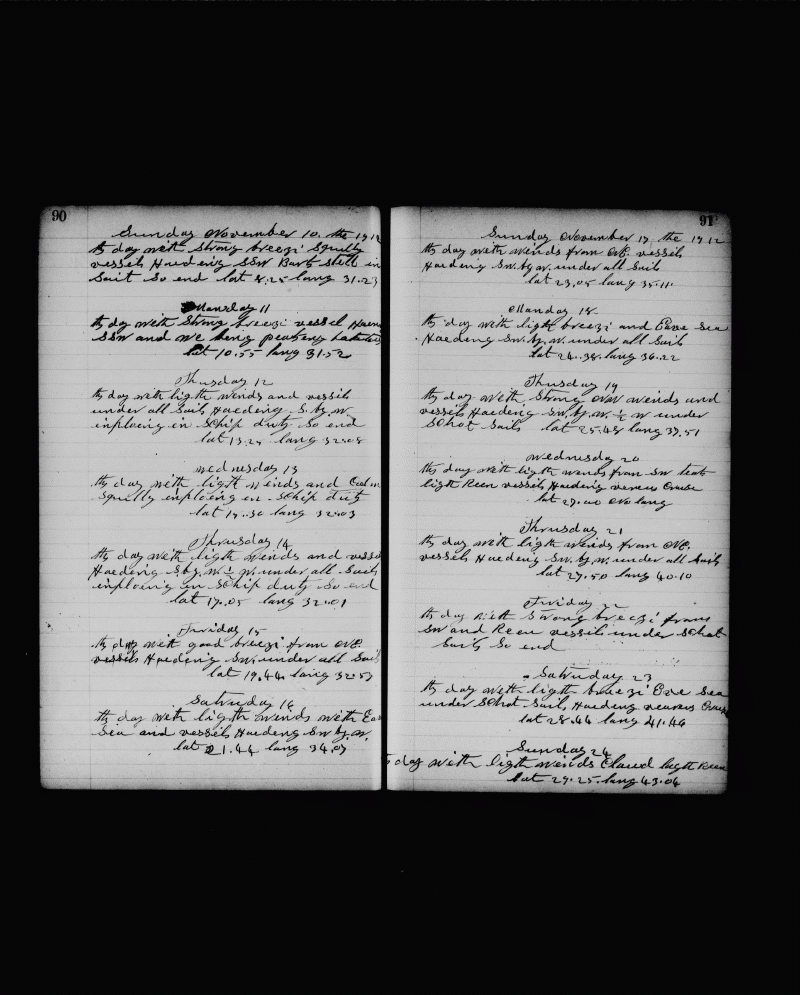 90
Sunday November 10. the 1912
th day with Strong breezi Squlley
vessels Haedeing SSW Bart still in
Sait So end lat 8.25 lang 31.23
Manday 11
th day with Strong breezi vessel Haen
SSW and we being
lat 10.55 lang 31.52
Thusday 12
th day with ligth winds and vessils
under all Sails Haedeing S. by. W.
inploing in Schip duty So end
lat 13.25 lang 32.08
wednusday 13
th day with ligth winds and
Squlley enploeing en Schip duty
lat 15.30 lang 32.03
Thrusday 14
th day with ligth winds and vesse
Haedeing S. by. W. ½ W. under all Sails
inploeing in Schip duty So end
lat 17.05 lang 32.01
Furiday 15
th day with good breezi from NE.
vessels Haedeing SW. under all Sail
lat 19.44 laing 32.53
Satruday 16
th day with ligth winds with Ea
Sea and vessels Haedeing SW by. W.
lat 21.44 lang 34.09
91
Sunday November 17, the 1912
th day with weinds from NE. vessils
Haedeing SW. by W. under all Sails
lat 23.05 lang 35.11
Manday 18.
th day with ligth breezi and Eave Sea
Haedeing SW. by. W. under all Sail
lat 24.38. lang 36.22
Thusday 19
th day with Strong NW weinds and
vessels Haedeing SW. by. W. ½ W under
Schot Sails lat 25.48 lang 37.51
Wednesday 20
th day with ligth winds from SW
ligth Reen vessels Haedeing
lat 27.00 No lang
Thrusday 21
th day with ligth weinds from NE.
vessels Haedeing SW. by. W. under all Sails
lat 27.50 lang 40.10
Furiday 22
th day with Strong breezi from
SW and Reen vessils under Schot
Sails So end
Satruday 23
th day with ligth breezi Eve Sea
under Schot Sail, Haedeing
lat 28.44 lang 41.44
Sunday 24
day with ligth weinds Claued Reen
lat 29.25. lang 43.04